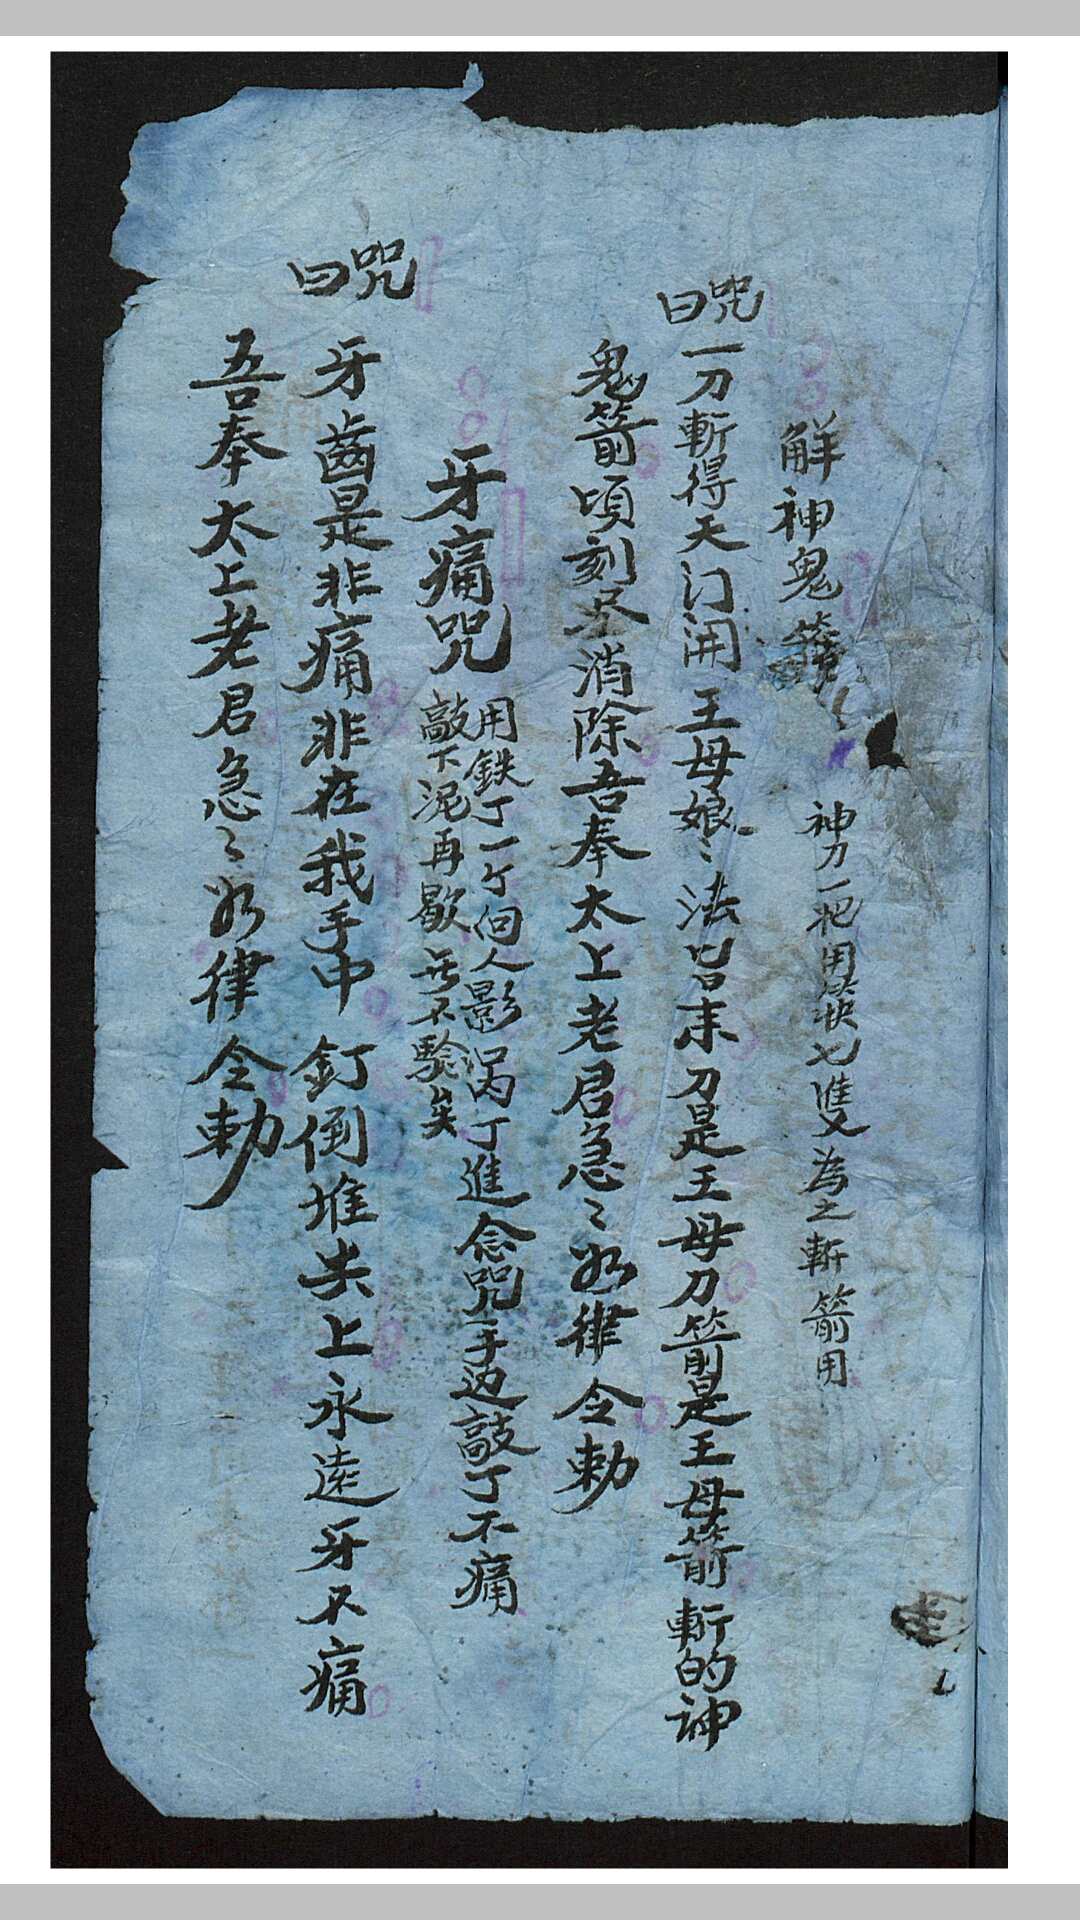 解神鬼箭
神刀一把用筷七隻為之斬箭用
咒曰
一刀斬得天门開王母娘〻法旨末刀是王母刀箭是王母箭斬的神
鬼箭頃刻尽消除吾奉太上老君急〻如律令勅
牙痛咒
用鉄丁一个向人影涡丁進念咒手边敲丁不痛
敲下泥再歇無不驗矣
咒曰
牙齒是非痛非在我手中釘倒堆失上永遠牙不痛
吾奉太上老君急〻如律令勅